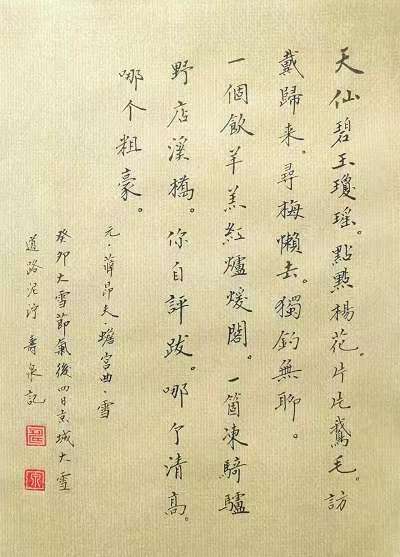 天仙碧玉瓊瑤。點點楊花。片片鵝毛。訪
戴歸来。尋梅懶去。獨釣無聊。
一個飲羊羔紅爐煖閣。一箇凍騎驢
野店溪橋。你自評跋。哪个清高。
哪个粗豪。
元·薛昂夫蟾宫曲·雪
癸卯大雪節氣後四日京城大雪
道路泥泞 壽泉記